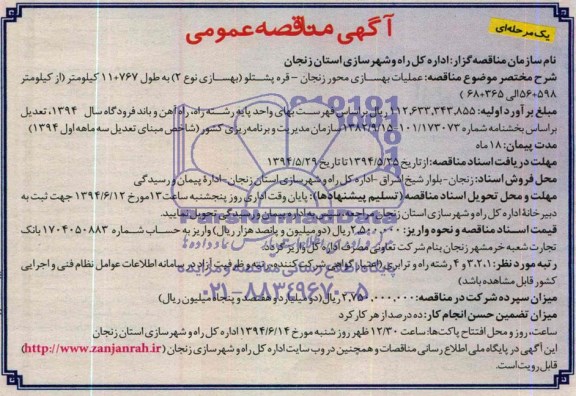 آگهی مناقصه عمومی
یک مرحله‌ای
نام سازمان مناقصه گزار: اداره کل راه و شهرسازی استان زنجان
شرح مختصر موضوع مناقصه: عملیات بهسازی محور زنجان - قره پشتلو (بهسازی نوع ۲) به طول ۱۱۰۷۶۷ کیلومتر (از کیلومتر
۵۶۰۵۹۸ الی ۶۸۰۳۶۵ )
مبلغ برآورد اولیه: ۱۱۲,۶۳۳,۳۴۳,۸۵۵ ریال براساس فهرست بهای واحد پایه رشته راه، راه آهن و باند فرودگاه سال ۱۳۹۴، تعدیل
براساس بخشنامه شماره ۱۰۱/۱۷۳۰۷۳-۱۳۸۲/۹/۱۵ سازمان مدیریت و برنامه ریزی کشور (شاخص مبنای تعدیل سه ماهه اول ۱۳۹۴)
مدت پیمان: ۱۸ ماه
مهلت دریافت اسناد مناقصه: از تاریخ ۱۳۹۴/۵/۲۵ تا تاریخ ۱۳۹۴/۵/۲۹
محل فروش اسناد: زنجان - بلوار شیخ اشراق - اداره کل راه و شهرسازی استان زنجان - ادارهٔ پیمان و رسیدگی
مهلت و محل تحویل اسناد مناقصه (تسلیم پیشنهادها): پایان وقت اداری روز پنجشنبه ساعت ۱۳ مورخ ۱۳۹۴/۶/۱۲ جهت ثبت به
دبیرخانهٔ اداره کل راه و شهرسازی استان زنجان مراجعه، سپس به اداره پیمان و رسیدگی تحویل نمایید.
قیمت اسناد مناقصه و نحوه واریز: ۲,۵۰۰,۰۰۰ ریال (دو میلیون و پانصد هزار ریال) واریز به حساب شماره ۱۷۰۴۰۵۰۸۸۳ بانک
تجارت شعبه خرمشهر زنجان بنام شرکت تعاونی مصرف اداره کل واریز گردد.
رتبه مورد نظر: ۳،۲،۱ و ۴ رشته راه و ترابری (اعتبار گواهی شرکت کننده، رتبه و ظرفیت آزاد در سامانه اطلاعات عوامل نظام فنی و اجرایی
کشور قابل مشاهده باشد)
میزان سپرده شرکت در مناقصه: ۲,۷۵۰,۰۰۰,۰۰۰ ریال (دو میلیارد و هفتصد و پنجاه میلیون ریال)
میزان تضمین حسن انجام کار: ده درصد از هر کارکرد
ساعت، روز و محل افتتاح پاکت‌ها: ساعت ۱۲/۳۰ ظهر روز شنبه مورخ ۱۳۹۴/۶/۱۴ اداره کل راه و شهرسازی استان زنجان
این آگهی در پایگاه ملی اطلاع رسانی مناقصات و همچنین در وب سایت اداره کل راه و شهرسازی زنجان (http://www.zanjanrah.ir)
قابل رویت است.
پایگاه اطلاع رسانی مناقصه و مزایده
۰۲۱-۸۸۳۴۹۶۷۰-۵